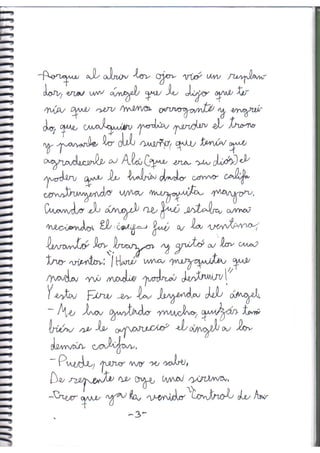 -Porque al abrir los ojos vió un resplan
dor, era un ángel que le dijo que te
nía que ser menos arrogante y engreí
do, que cualquier podía perder el trono
y pasarle lo del sueño, que tenía que
agradecerle a Alá (que era su dios) el
poder que le había dado como califa
construyendo una mezquita mayor.
Cuando el ángel se fué estaba ama
neciendo. El califa fué a la ventana,
levantó los brazos y gritó a los cua
tro vientos: ¡Haré una mezquita que
nada ni nadie podrá destruir!"
Y esta Fire es la leyenda del ángel.
- Me ha gustado mucho, quizás tam
bién se le apareció el ángel a los
demás califas.
- Puede, pero no se sabe.
De repente se oye una sirena.
-Creo que ya ha venido "Control de An
-3-